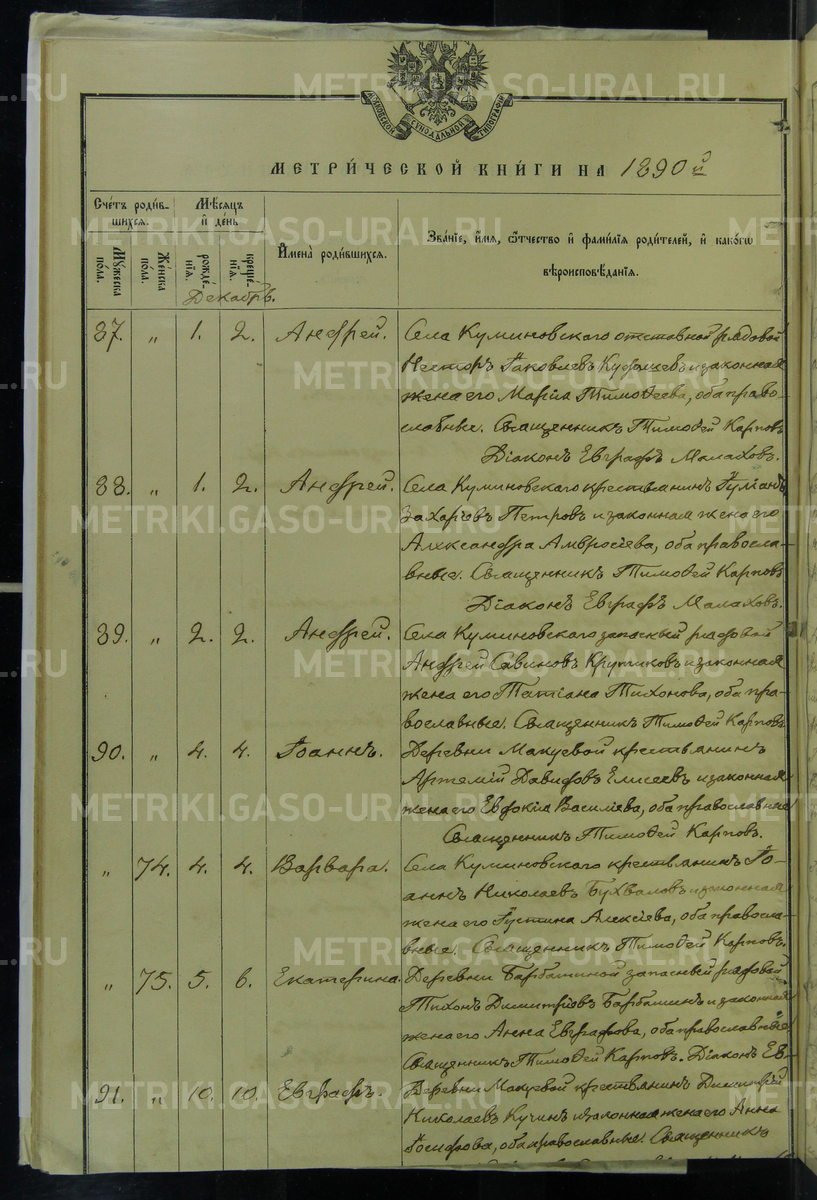 МОСКОВСКОЙ СѴНОДАЛЬНОЙ ТИПОГРАФІИ
МЕТРИ́ЧЕСКОЙ КНИ́ГИ НА 1890й
Сче́тъ роди́в-
шихся.
Мѣ́сяцъ
и҆ де́нь
И҆мена̀ роди́вшихся.
Зва́нїе, и҆́мя, ѻ҆́тчество и҆ фами́лїя роди́телей, и҆ како́гѡ
вѣроисповѣ́данїя.
Му́жеска по́ла.
Же́нска по́ла.
рожде́нїя.
креще́нїя.
Декабрь.
87. „ 1. 2. Андрей. Села Куминовскаго отставной рядовой
Несторъ Іаковлевъ и законная
жена его Марія Тимоѳеева, оба право-
славные. Священникъ Тимоѳей Карповъ
Діаконъ Евграфъ Малаховъ.
88. „ 1. 2. Андрей. Села Куминовскаго крестьянинъ
Захаріовъ Петровъ и законная жена его
Александра Амвросіева, оба правосла-
вные. Священникъ Тимоѳей Карповъ
Діаконъ Евграфъ Малаховъ.
89. „ 2. 2. Андрей. Села Куминовскаго запасный рядовой
Андрей Савиновъ Крутиковъ и законная
жена его Татіана Тихонова, оба пра-
вославные. Священникъ Тимоѳей Карповъ.
90. „ 4. 4. Іоаннъ. Деревни Макуевой крестьянинъ
Артемій Давидовъ Елисеевъ и законная
жена его Евдокіа Василіева, оба православные
Священникъ Тимоѳей Карповъ.
„ 74. 4. 4. Варвара. Села Куминовскаго крестьянинъ Іо-
аннъ Николаевъ Бухваловъ и законная
жена его Іустина Алексіева, оба правосла-
вные. Священникъ Тимоѳей Карповъ.
„ 75. 5. 6. Екатерина. Деревни Барбашиной запасный рядовой
Тихонъ Димитріовъ Барбашинъ и законная
жена его Анна Евграфова, оба православные
Священникъ Тимоѳей Карповъ. Діаконъ Ев-
91. „ 10. 10. Евграфъ. Деревни Макуевой крестьянинъ Димитрій
Николаевъ Кучинъ и законная жена его Анна
Іосифова, оба православные. Священникъ
METRIKI.GASO-URAL.RU